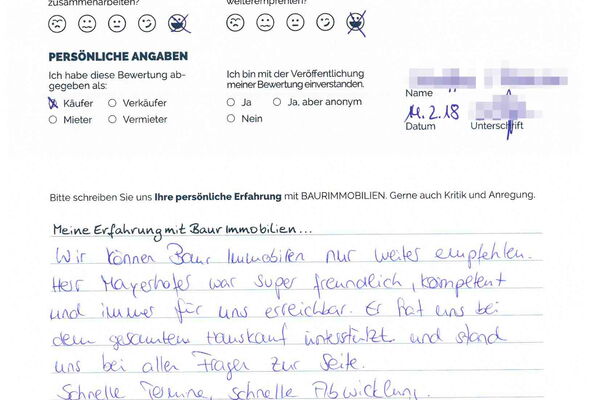 zusammenarbeiten?
weiterempfehlen?
PERSÖNLICHE ANGABEN
Ich habe diese Bewertung ab-
gegeben als:
Käufer Verkäufer
Mieter Vermieter
Ich bin mit der Veröffentlichung
meiner Bewertung einverstanden.
Ja Ja, aber anonym
Nein
Name
11.2.18
Datum Unterschrift
Bitte schreiben Sie uns Ihre persönliche Erfahrung mit BAURIMMOBILIEN. Gerne auch Kritik und Anregung.
Meine Erfahrung mit Baur Immobilien...
Wir können Baur Immobilien nur weiter empfehlen.
Herr Mayerhofer war super freundlich, kompetent
und immer für uns erreichbar. Er hat uns bei
dem gesamten Hauskauf unterstützt und stand
uns bei allen Fragen zur Seite.
Schnelle Termine, schnelle Abwicklung.